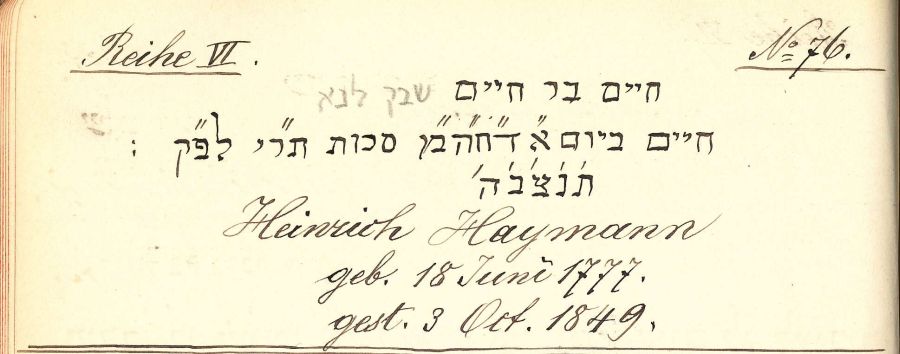 Reihe VI.
No 76.
חיים בר חיים שבק לנא
חיים ביום א״ דח״ה״מ״ סכות תר״י לפ״ק :
ת׳נ׳צ׳ב׳ה׳
Heinrich Haymann
geb. 18 Juni 1777.
gest. 3 Oct. 1849.